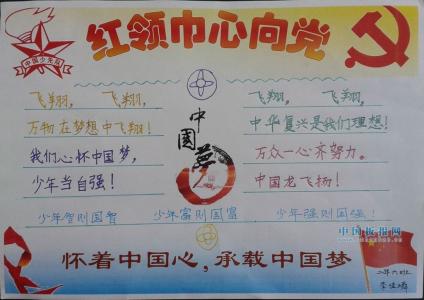 红领巾心向党
中国少先队
飞翔，飞翔，
万物在梦想中飞翔！
我们心怀中国梦，
少年当自强！
中国梦
飞翔，飞翔，
中华复兴是我们理想！
万众一心齐努力。
中国龙飞扬！
少年智则国智 少年富则国富 少年强则国强！
中国板报网
怀着中国心，承载中国梦
二年六班